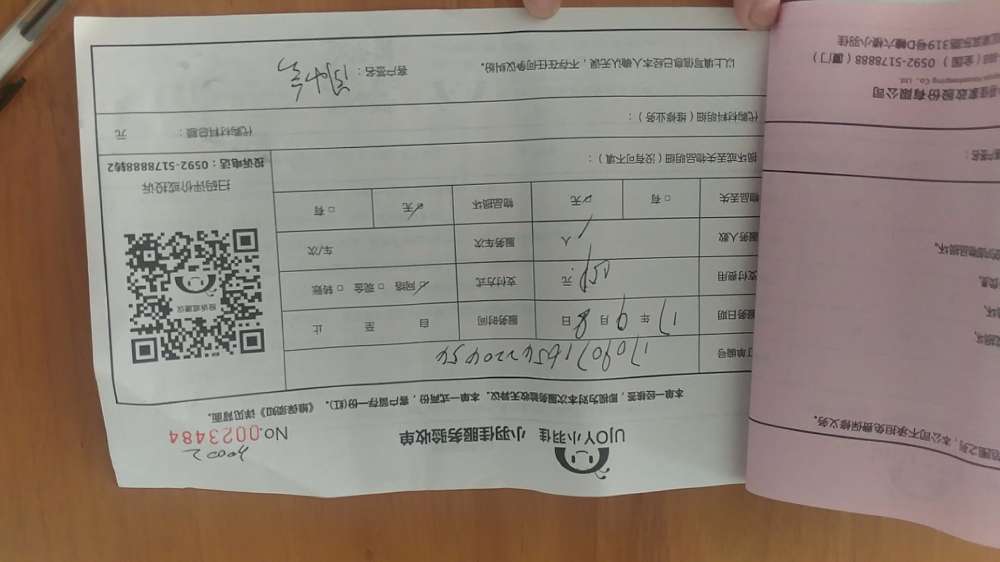 UJOY小羽佳 小羽佳服务验收单
No.0023484
本单一经核签，即视为对本次服务验收无异议。本单一式两份，客户留存一份(红)。《维保须知》详见背面。
订单编号
服务日期 17年9月8日 服务时间 自 至 止
支付费用 元 支付方式 ☑网络 □现金 □转账
服务人数 1人 服务车次 车/次
物品丢失 □有 ☑无 物品损坏 ☑无 □有
损坏或丢失物品明细（没有可不填）：
代购材料明细（维修业务）：
代购材料总额： 元
以上填写信息已经本人确认无误，不存在任何争议纠纷。 客户签名：
投诉或建议
扫码评价或投诉
投诉电话：0592-5178888转2
本公司不承担免费保修义务。
家政股份有限公司
（全国） 0592-5178888（厦门）
319号D幢六楼小羽佳